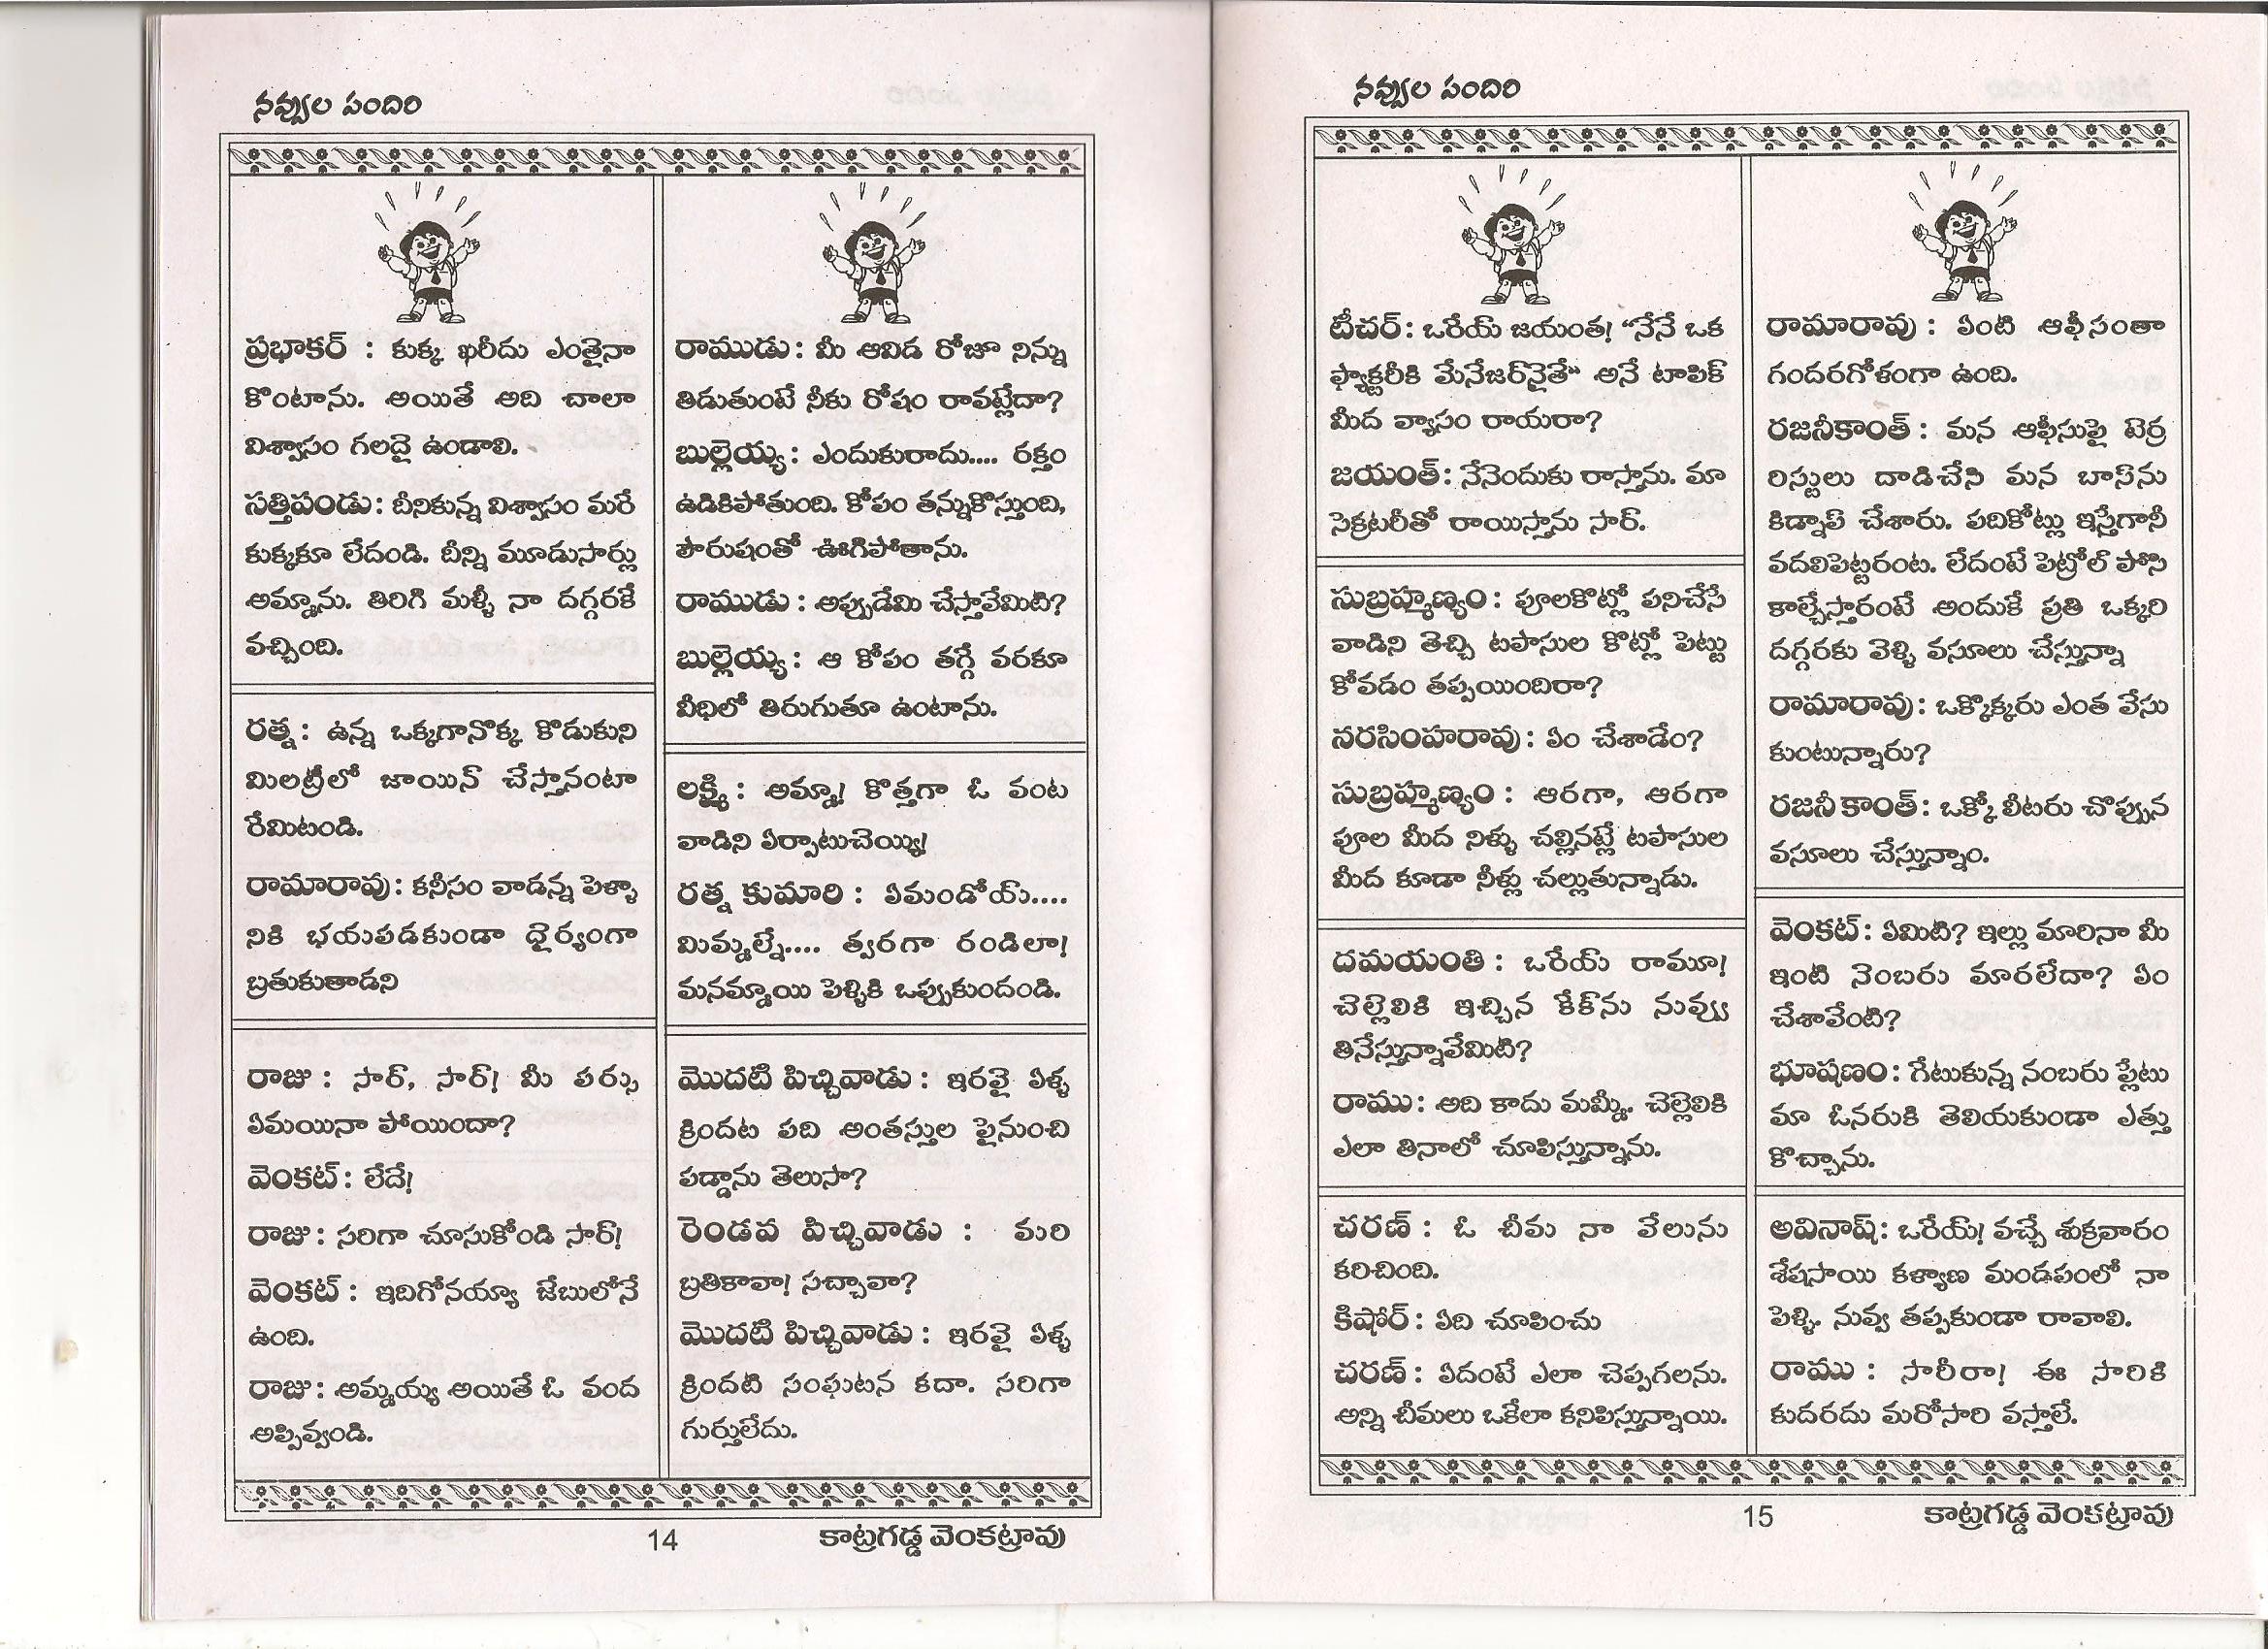 నవ్వుల పందిరి
ప్రభాకర్ : కుక్క ఖరీదు ఎంతైనా
కొంటాను. అయితే అది చాలా
విశ్వాసం గలదై ఉండాలి.
సత్తిపండు: దీనికున్న విశ్వాసం మరే
కుక్కకూ లేదండి. దీన్ని మూడుసార్లు
అమ్మాను. తిరిగి మళ్ళీ నా దగ్గరకే
వచ్చింది.
రత్న: ఉన్న ఒక్కగానొక్క కొడుకుని
మిలట్రీలో జాయిన్ చేస్తానంటా
రేమిటండి.
రామారావు: కనీసం వాడన్న పెళ్ళా
నికి భయపడకుండా ధైర్యంగా
బ్రతుకుతాడని
రాజు: సార్, సార్! మీ పర్సు
ఏమయినా పోయిందా?
వెంకట్: లేదే!
రాజు: సరిగా చూసుకోండి సార్!
వెంకట్: ఇదిగోనయ్యా జేబులోనే
ఉంది.
రాజు: అమ్మయ్య అయితే ఓ వంద
అప్పివ్వండి.
రాముడు: మీ ఆవిడ రోజూ నిన్ను
తిడుతుంటే నీకు రోషం రావట్లేదా?
బుల్లెయ్య: ఎందుకురాదు.... రక్తం
ఉడికిపోతుంది. కోపం తన్నుకొస్తుంది,
పౌరుషంతో ఊగిపోతాను.
రాముడు: అప్పుడేమి చేస్తావేమిటి?
బుల్లెయ్య: ఆ కోపం తగ్గే వరకూ
వీధిలో తిరుగుతూ ఉంటాను.
లక్ష్మి: అమ్మా! కొత్తగా ఓ వంట
వాడిని ఏర్పాటుచెయ్యి!
రత్న కుమారి: ఏమండోయ్....
మిమ్మల్నే.... త్వరగా రండిలా!
మనమ్మాయి పెళ్ళికి ఒప్పుకుందండి.
మొదటి పిచ్చివాడు: ఇరవై ఏళ్ళ
క్రిందట పది అంతస్తుల పైనుంచి
పడ్డాను తెలుసా?
రెండవ పిచ్చివాడు : మరి
బ్రతికావా! సచ్చావా?
మొదటి పిచ్చివాడు: ఇరవై ఏళ్ళ
క్రిందటి సంఘటన కదా. సరిగా
గుర్తులేదు.
14
కాట్రగడ్డ వెంకట్రావు
నవ్వుల పందిరి
టీచర్: ఒరేయ్ జయంత! "నేనే ఒక
ఫ్యాక్టరీకి మేనేజర్‌నైతే" అనే టాపిక్
మీద వ్యాసం రాయరా?
జయంత్: నేనెందుకు రాస్తాను. మా
సెక్రటరీతో రాయిస్తాను సార్.
సుబ్రహ్మణ్యం: పూలకొట్లో పనిచేసే
వాడిని తెచ్చి టపాసుల కొట్లో పెట్టు
కోవడం తప్పయిందిరా?
నరసింహరావు: ఏం చేశాడేం?
సుబ్రహ్మణ్యం: ఆరగా, ఆరగా
పూల మీద నిళ్ళు చల్లినట్లే టపాసుల
మీద కూడా నీళ్లు చల్లుతున్నాడు.
దమయంతి: ఒరేయ్ రామూ!
చెల్లెలికి ఇచ్చిన కేక్‌ను నువ్వు
తినేస్తున్నావేమిటి?
రాము: అది కాదు మమ్మీ. చెల్లెలికి
ఎలా తినాలో చూపిస్తున్నాను.
చరణ్: ఓ చీమ నా వేలును
కరిచింది.
కిషోర్: ఏది చూపించు
చరణ్: ఏదంటే ఎలా చెప్పగలను.
అన్ని చీమలు ఒకేలా కనిపిస్తున్నాయి.
రామారావు: ఏంటి ఆఫీసంతా
గందరగోళంగా ఉంది.
రజనీకాంత్: మన ఆఫీసుపై టెర్ర
రిస్టులు దాడిచేసి మన బాస్‌ను
కిడ్నాప్ చేశారు. పదికోట్లు ఇస్తేగానీ
వదలిపెట్టరంట. లేదంటే పెట్రోల్ పోసి
కాల్చేస్తారంటే అందుకే ప్రతి ఒక్కరి
దగ్గరకు వెళ్ళి వసూలు చేస్తున్నా
రామారావు: ఒక్కొక్కరు ఎంత వేసు
కుంటున్నారు?
రజనీ కాంత్: ఒక్కో లీటరు చొప్పున
వసూలు చేస్తున్నాం.
వెంకట్: ఏమిటి? ఇల్లు మారినా మీ
ఇంటి నెంబరు మారలేదా? ఏం
చేశావేంటి?
భూషణం: గేటుకున్న నంబరు ప్లేటు
మా ఓనరుకి తెలియకుండా ఎత్తు
కొచ్చాను.
అవినాష్: ఒరేయ్! వచ్చే శుక్రవారం
శేషసాయి కళ్యాణ మండపంలో నా
పెళ్ళి. నువ్వ తప్పకుండా రావాలి.
రాము: సారీరా! ఈ సారికి
కుదరదు మరోసారి వస్తాలే.
15
కాట్రగడ్డ వెంకట్రావు